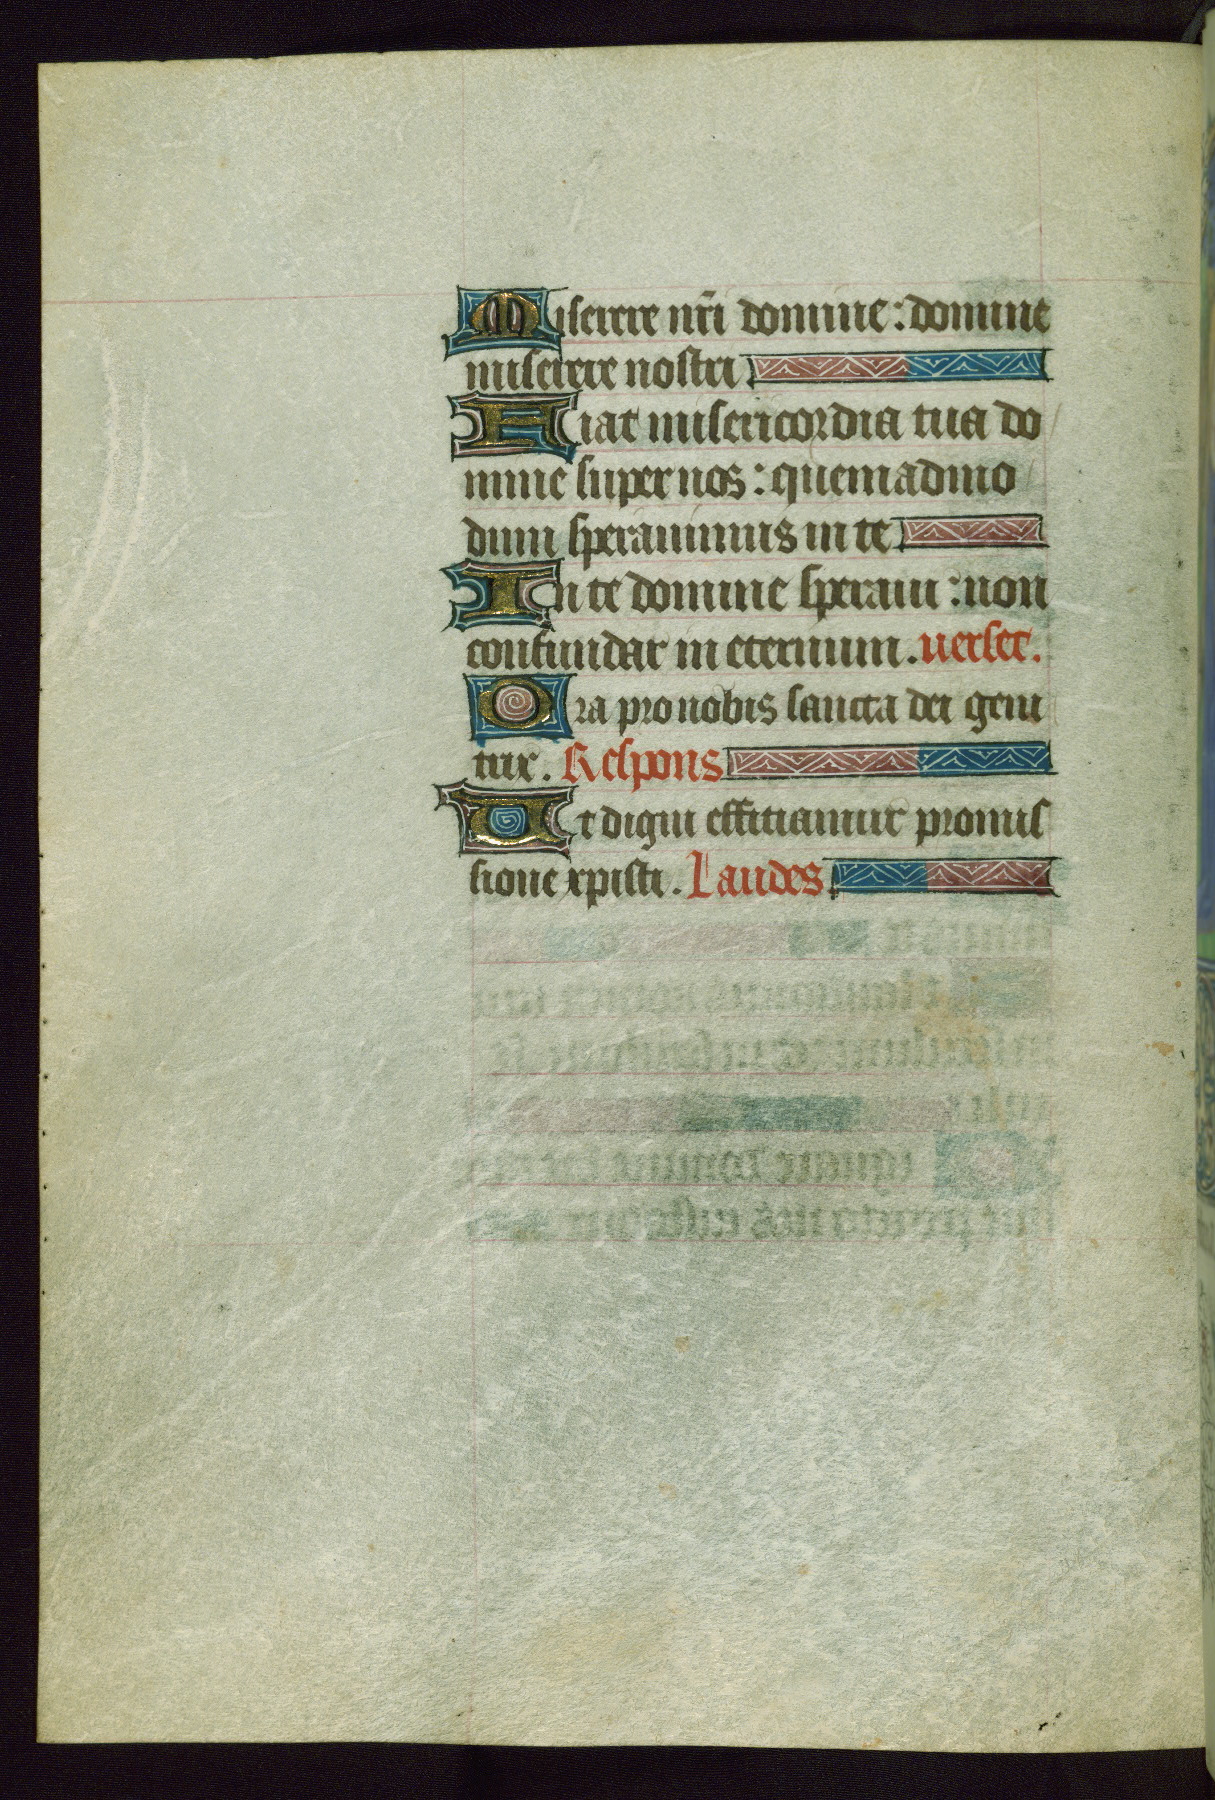 Miserere nr̄i domine : domine
miserere nostri
Fiat misericordia tua do
mine super nos : quemadmo
dum sperauimus in te
In te domine speraui : non
confundar in eternum . uerset .
Ora pro nobis sancta dei geni
trix . Respons
Ut digni effitiamur promis
sione xpisti . Laudes